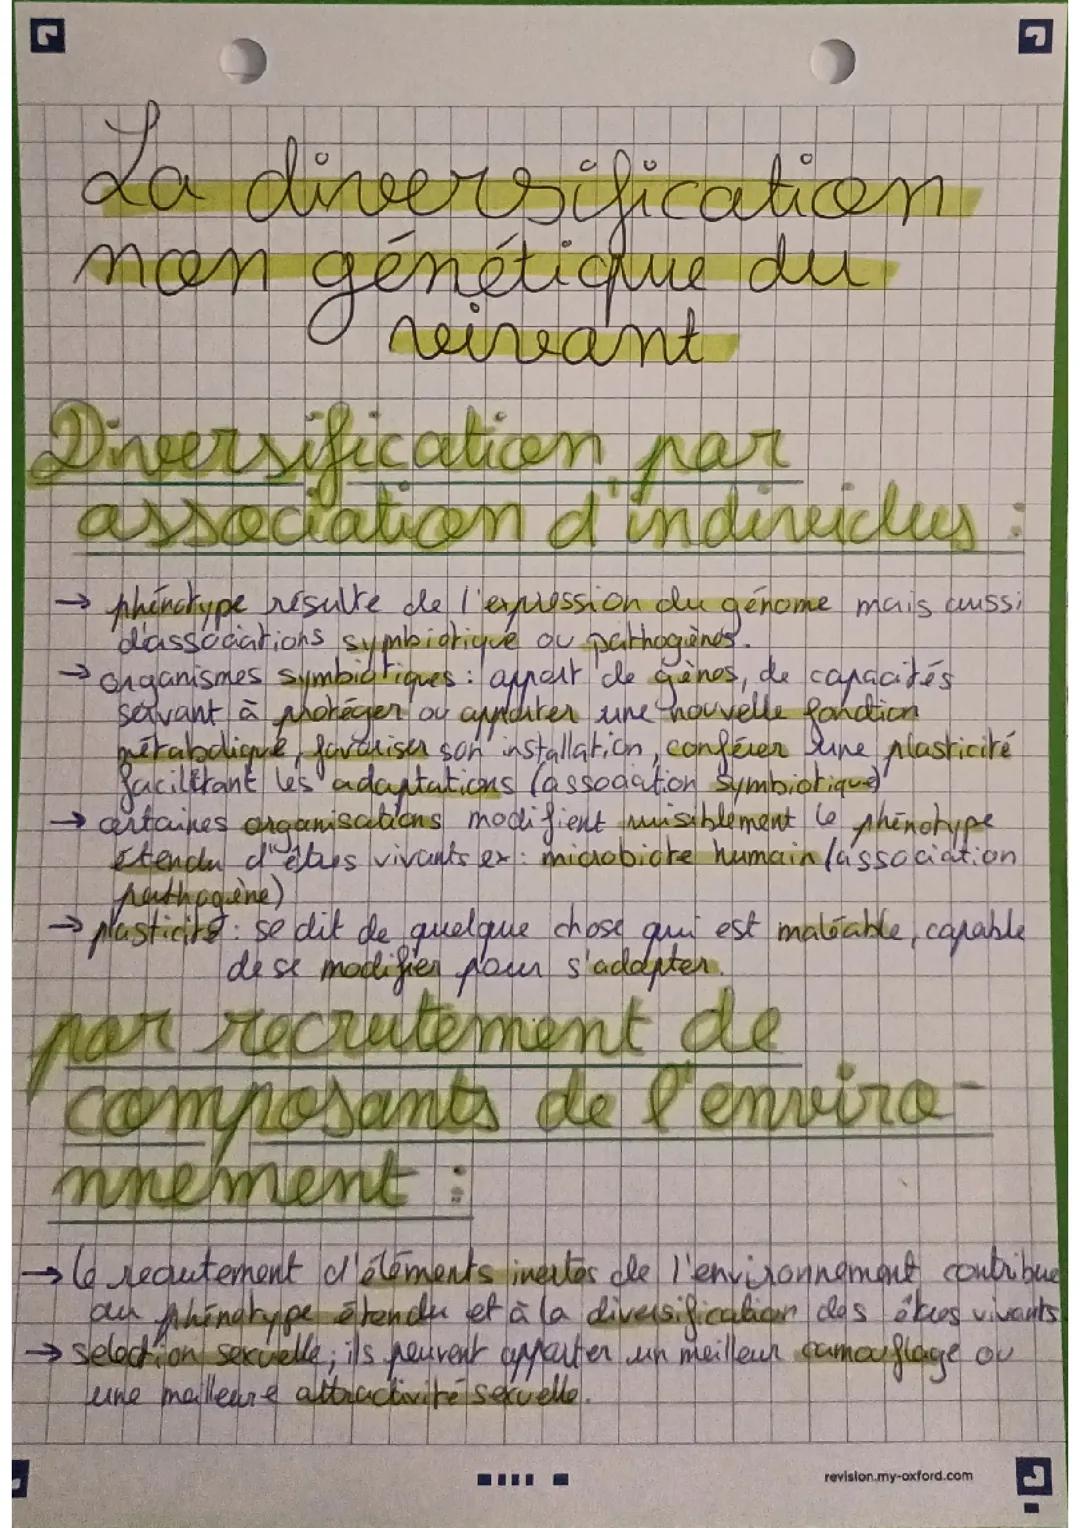 La diversification
non génétique du
vivant
Diversification par
association d'individus :
→ phénotype résulte de l'expression du génome mais aussi
d'associations symbiotique ou pathogènes.
→ organismes symbiotiques : apport de gènes, de capacités
servant à protéger ou apporter une nouvelle fonction
métabolique, favoriser son installation, conférer une plasticité
facilitant les adaptations (association symbiotique)
→ certaines organisations modifient nuisiblement le phénotype
étendu d'êtres vivants ex : microbiote humain (association
pathogène)
→ plasticité : se dit de quelque chose qui est maléable, capable
de se modifier pour s'adapter.
par recrutement de
composants de l'enviro-
nnement :
→ le recrutement d'éléments inertes de l'environnement contribue
au phénotype étendu et à la diversification des êtres vivants
→ selection sexuelle ; ils peuvent apporter un meilleur camouflage ou
une meilleure attractivité sexuelle.
revision.my-oxford.com